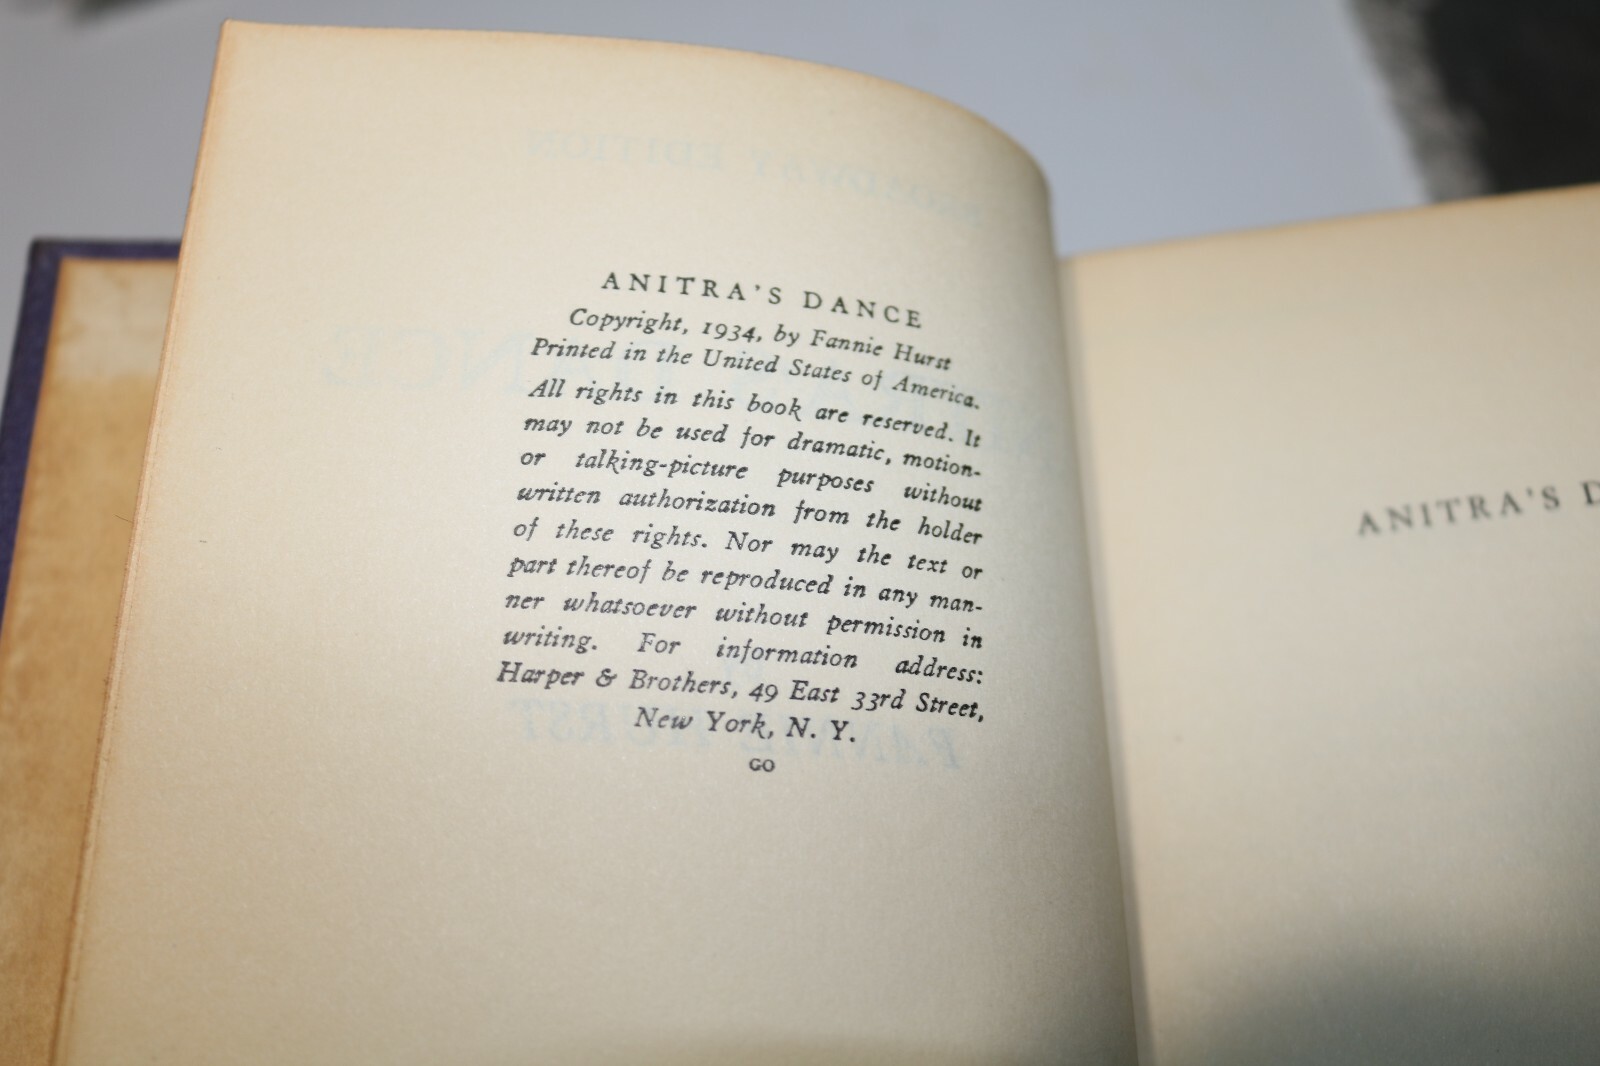 ANITRA'S DANCE
Copyright, 1934, by Fannie Hurst
Printed in the United States of America.
All rights in this book are reserved. It
may not be used for dramatic, motion-
or talking-picture purposes without
written authorization from the holder
of these rights. Nor may the text or
part thereof be reproduced in any man-
ner whatsoever without permission in
writing. For information address:
Harper & Brothers, 49 East 33rd Street,
New York, N. Y.
GO
ANITRA'S D